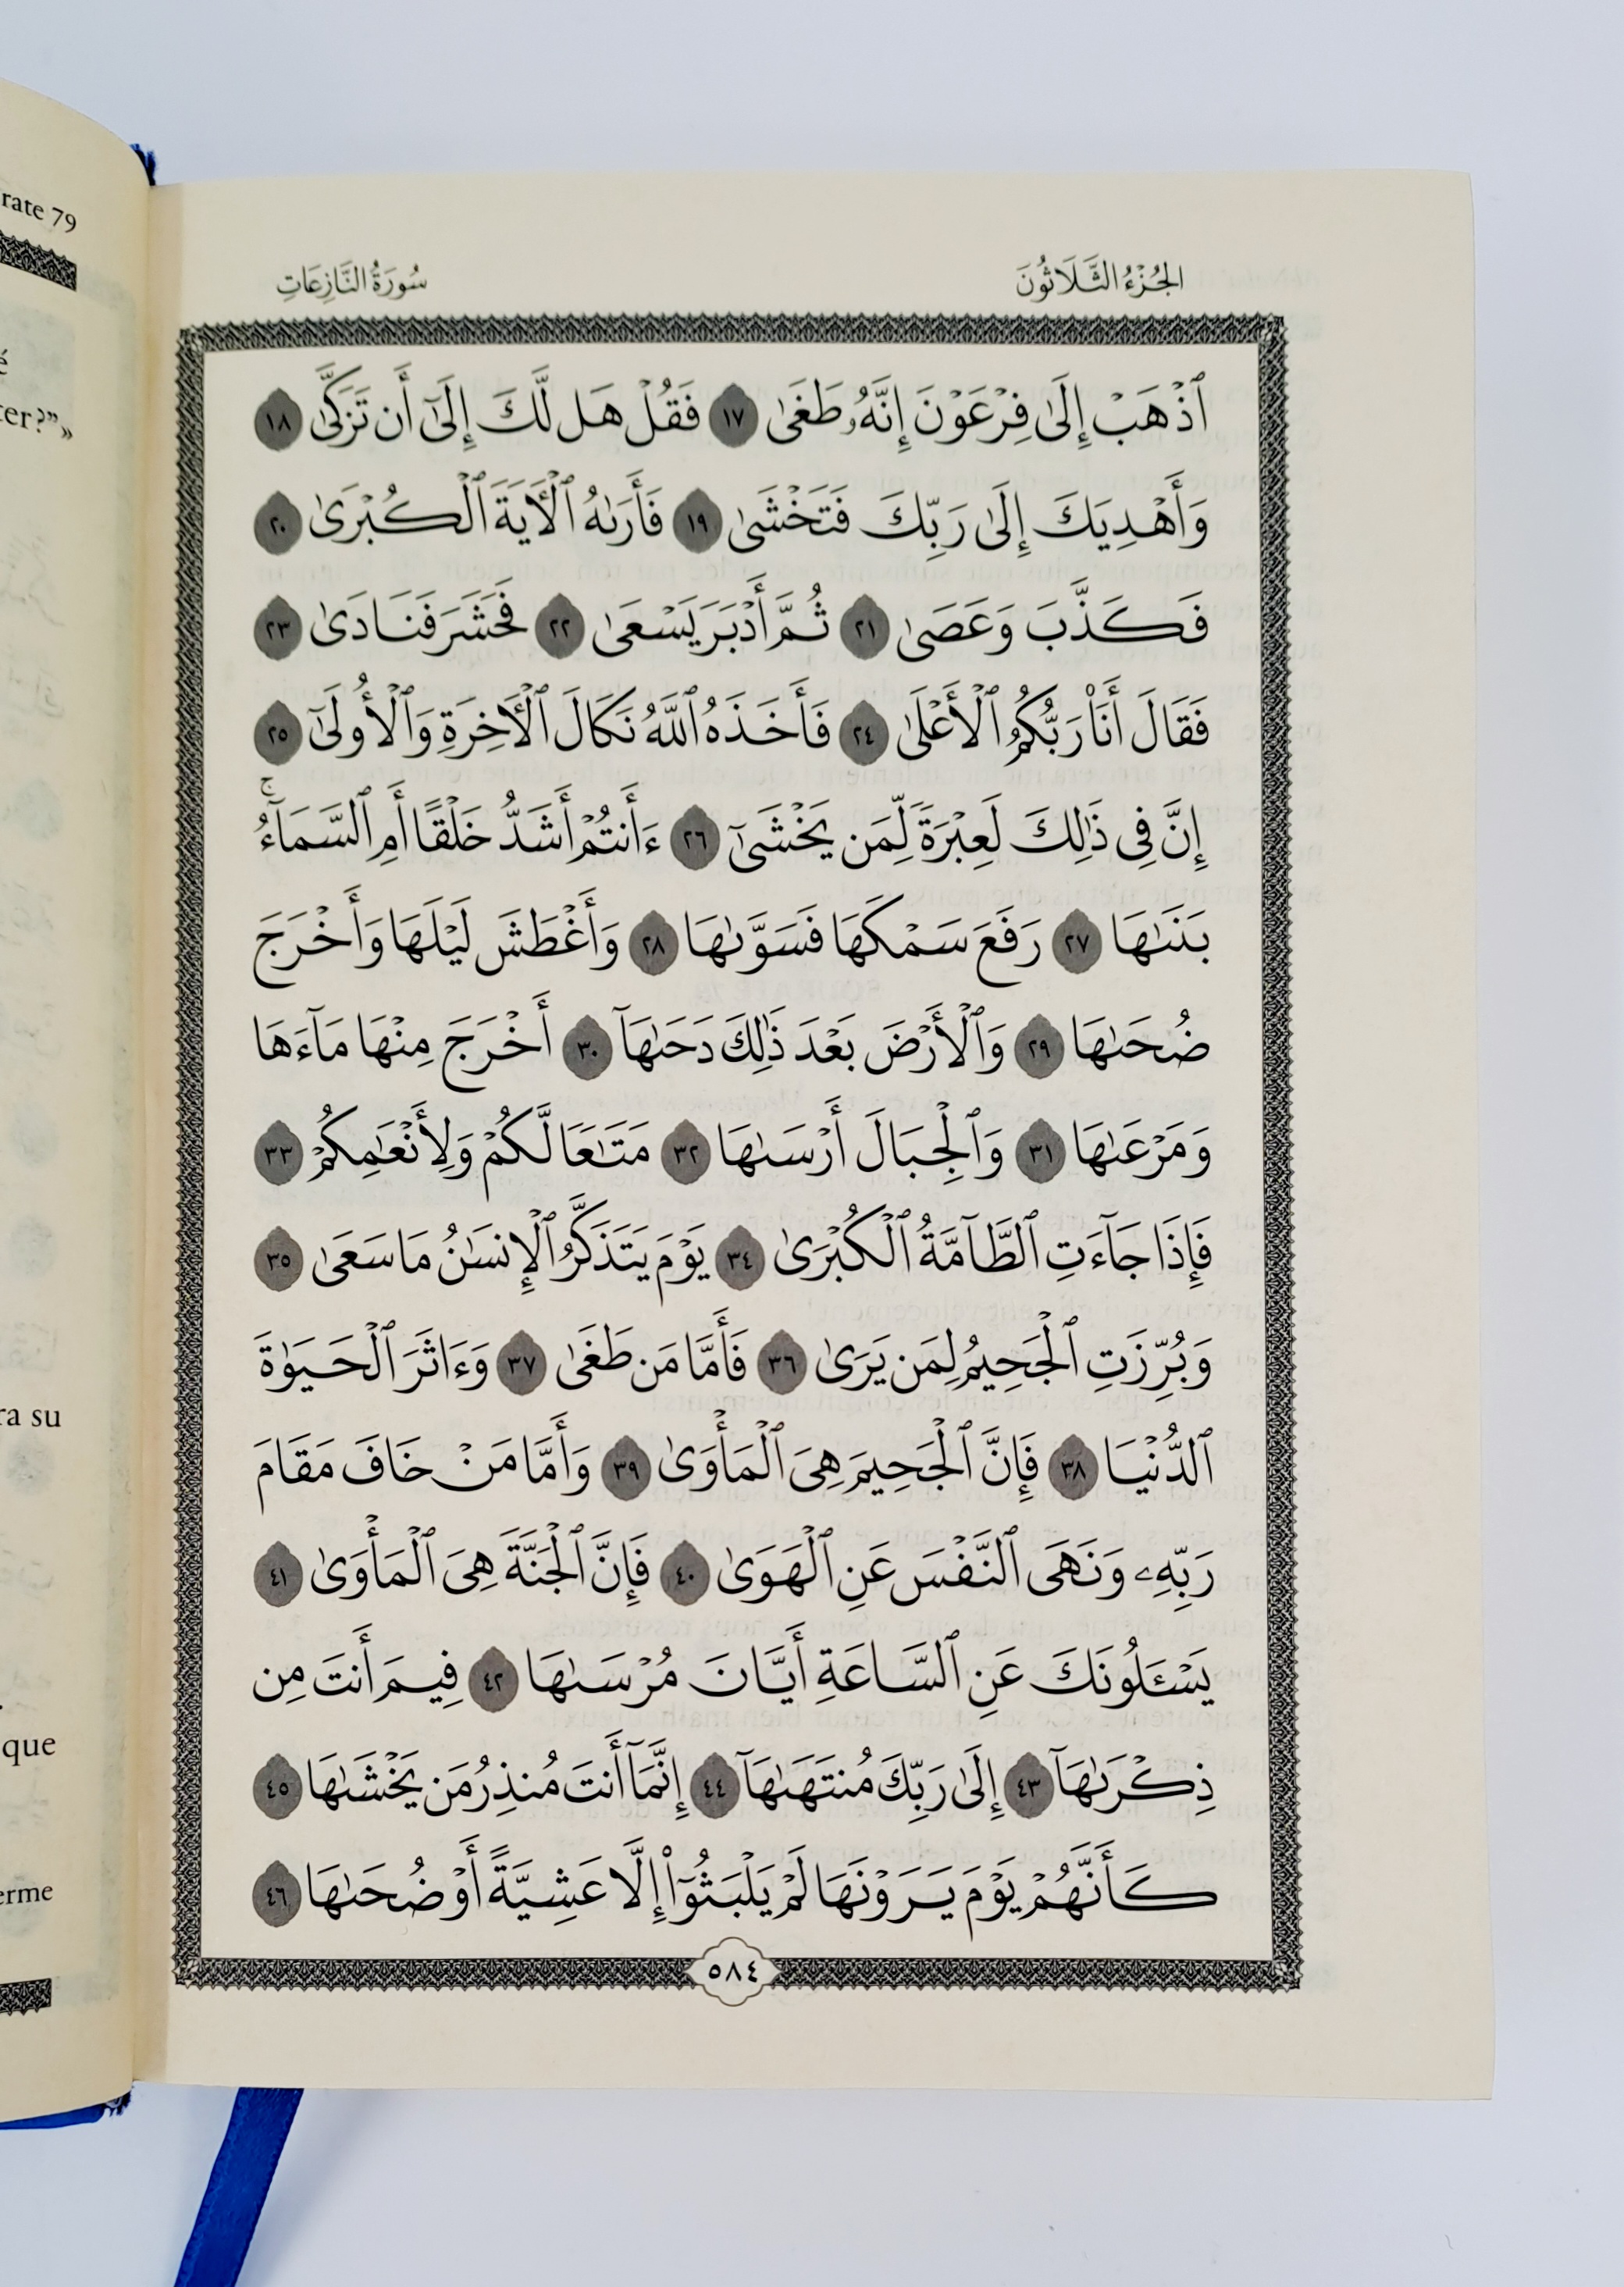 rate 79
é
ter?”»
ra su
que
erme
الجُزْءُ الثَّلَاثُونَ
سُورَةُ النَّازِعَاتِ
ٱذْهَبْ إِلَىٰ فِرْعَوْنَ إِنَّهُۥ طَغَىٰ ١٧ فَقُلْ هَل لَّكَ إِلَىٰٓ أَن تَزَكَّىٰ ١٨
وَأَهْدِيَكَ إِلَىٰ رَبِّكَ فَتَخْشَىٰ ١٩ فَأَرَىٰهُ ٱلْأَيَةَ ٱلْكُبْرَىٰ ٢٠
فَكَذَّبَ وَعَصَىٰ ٢١ ثُمَّ أَدْبَرَ يَسْعَىٰ ٢٢ فَحَشَرَ فَنَادَىٰ ٢٣
فَقَالَ أَنَا۠ رَبُّكُمُ ٱلْأَعْلَىٰ ٢٤ فَأَخَذَهُ ٱللَّهُ نَكَالَ ٱلْأَخِرَةِ وَٱلْأُولَىٰٓ ٢٥
إِنَّ فِى ذَٰلِكَ لَعِبْرَةً لِّمَن يَخْشَىٰٓ ٢٦ ءَأَنتُمْ أَشَدُّ خَلْقًا أَمِ ٱلسَّمَآءُ ۚ
بَنَىٰهَا ٢٧ رَفَعَ سَمْكَهَا فَسَوَّىٰهَا ٢٨ وَأَغْطَشَ لَيْلَهَا وَأَخْرَجَ
ضُحَىٰهَا ٢٩ وَٱلْأَرْضَ بَعْدَ ذَٰلِكَ دَحَىٰهَآ ٣٠ أَخْرَجَ مِنْهَا مَآءَهَا
وَمَرْعَىٰهَا ٣١ وَٱلْجِبَالَ أَرْسَىٰهَا ٣٢ مَتَٰعًا لَّكُمْ وَلِأَنْعَٰمِكُمْ ٣٣
فَإِذَا جَآءَتِ ٱلطَّآمَّةُ ٱلْكُبْرَىٰ ٣٤ يَوْمَ يَتَذَكَّرُ ٱلْإِنسَٰنُ مَا سَعَىٰ ٣٥
وَبُرِّزَتِ ٱلْجَحِيمُ لِمَن يَرَىٰ ٣٦ فَأَمَّا مَن طَغَىٰ ٣٧ وَءَاثَرَ ٱلْحَيَوٰةَ
ٱلدُّنْيَا ٣٨ فَإِنَّ ٱلْجَحِيمَ هِىَ ٱلْمَأْوَىٰ ٣٩ وَأَمَّا مَنْ خَافَ مَقَامَ
رَبِّهِۦ وَنَهَى ٱلنَّفْسَ عَنِ ٱلْهَوَىٰ ٤٠ فَإِنَّ ٱلْجَنَّةَ هِىَ ٱلْمَأْوَىٰ ٤١
يَسْـَٔلُونَكَ عَنِ ٱلسَّاعَةِ أَيَّانَ مُرْسَىٰهَا ٤٢ فِيمَ أَنتَ مِن
ذِكْرَىٰهَآ ٤٣ إِلَىٰ رَبِّكَ مُنتَهَىٰهَآ ٤٤ إِنَّمَآ أَنتَ مُنذِرُ مَن يَخْشَىٰهَا ٤٥
كَأَنَّهُمْ يَوْمَ يَرَوْنَهَا لَمْ يَلْبَثُوٓا۟ إِلَّا عَشِيَّةً أَوْ ضُحَىٰهَا ٤٦
٥٨٤